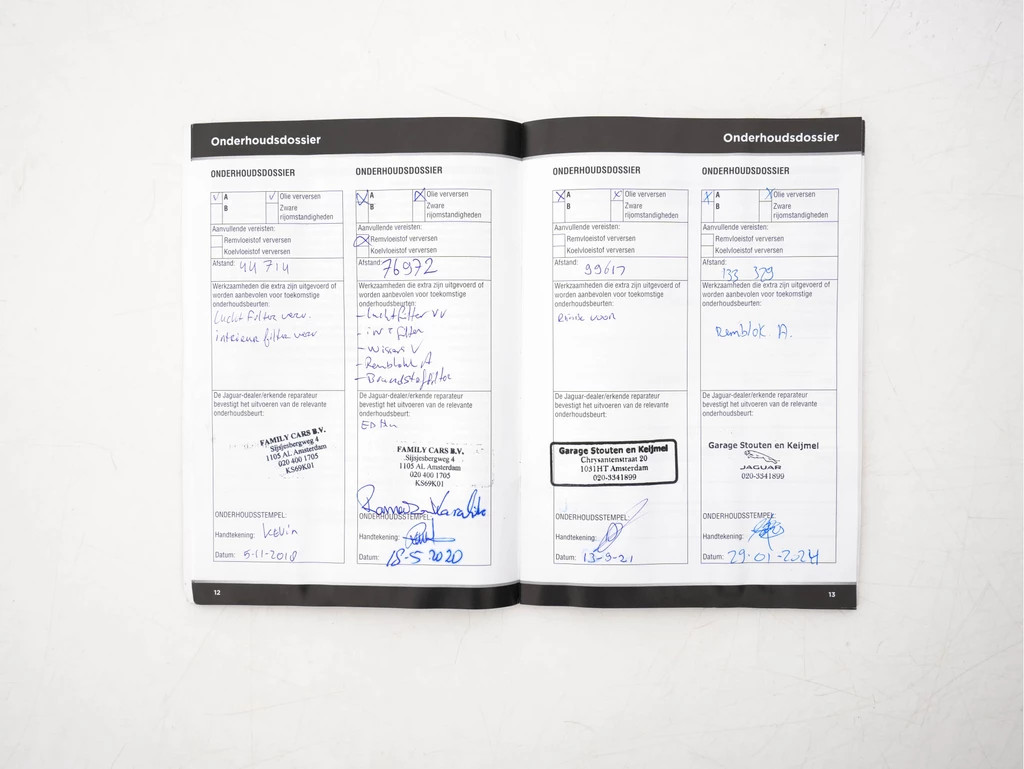 Onderhoudsdossier
ONDERHOUDSDOSSIER
A
Olie verversen
B
Zware
rijomstandigheden
Aanvullende vereisten:
Remvloeistof verversen
Koelvloeistof verversen
Afstand: 44 714
Werkzaamheden die extra zijn uitgevoerd of
worden aanbevolen voor toekomstige
onderhoudsbeurten:
Lucht Filter verv.
interieur filter verv
De Jaguar-dealer/erkende reparateur
bevestigt het uitvoeren van de relevante
onderhoudsbeurt:
FAMILY CARS B.V.
Sijsjesbergweg 4
1105 AL Amsterdam
020 400 1705
KS69K01
ONDERHOUDSSTEMPEL:
Handtekening: Kevin
Datum: 5-11-2018
12
ONDERHOUDSDOSSIER
A
Olie verversen
B
Zware
rijomstandigheden
Aanvullende vereisten:
Remvloeistof verversen
Koelvloeistof verversen
Afstand: 76972
Werkzaamheden die extra zijn uitgevoerd of
worden aanbevolen voor toekomstige
onderhoudsbeurten:
- Luchtfilter VV
- int filter
- Wissers V
- Remblokk A
- Brandstoffilter
De Jaguar-dealer/erkende reparateur
bevestigt het uitvoeren van de relevante
onderhoudsbeurt:
FAMILY CARS B.V.
Sijsjesbergweg 4
1105 AL Amsterdam
020 400 1705
KS69K01
ONDERHOUDSSTEMPEL:
Handtekening:
Datum: 18-5-2020
Onderhoudsdossier
ONDERHOUDSDOSSIER
A
Olie verversen
B
Zware
rijomstandigheden
Aanvullende vereisten:
Remvloeistof verversen
Koelvloeistof verversen
Afstand: 99617
Werkzaamheden die extra zijn uitgevoerd of
worden aanbevolen voor toekomstige
onderhoudsbeurten:
voor
De Jaguar-dealer/erkende reparateur
bevestigt het uitvoeren van de relevante
onderhoudsbeurt:
Garage Stouten en Keijmel
Chrysantenstraat 20
1031HT Amsterdam
020-3341899
ONDERHOUDSSTEMPEL:
Handtekening:
Datum: 13-9-21
ONDERHOUDSDOSSIER
A
Olie verversen
B
Zware
rijomstandigheden
Aanvullende vereisten:
Remvloeistof verversen
Koelvloeistof verversen
Afstand: 133 379
Werkzaamheden die extra zijn uitgevoerd of
worden aanbevolen voor toekomstige
onderhoudsbeurten:
Remblok A.
De Jaguar-dealer/erkende reparateur
bevestigt het uitvoeren van de relevante
onderhoudsbeurt:
Garage Stouten en Keijmel
JAGUAR
020-3341899
ONDERHOUDSSTEMPEL:
Handtekening:
Datum: 29-01-2024
13